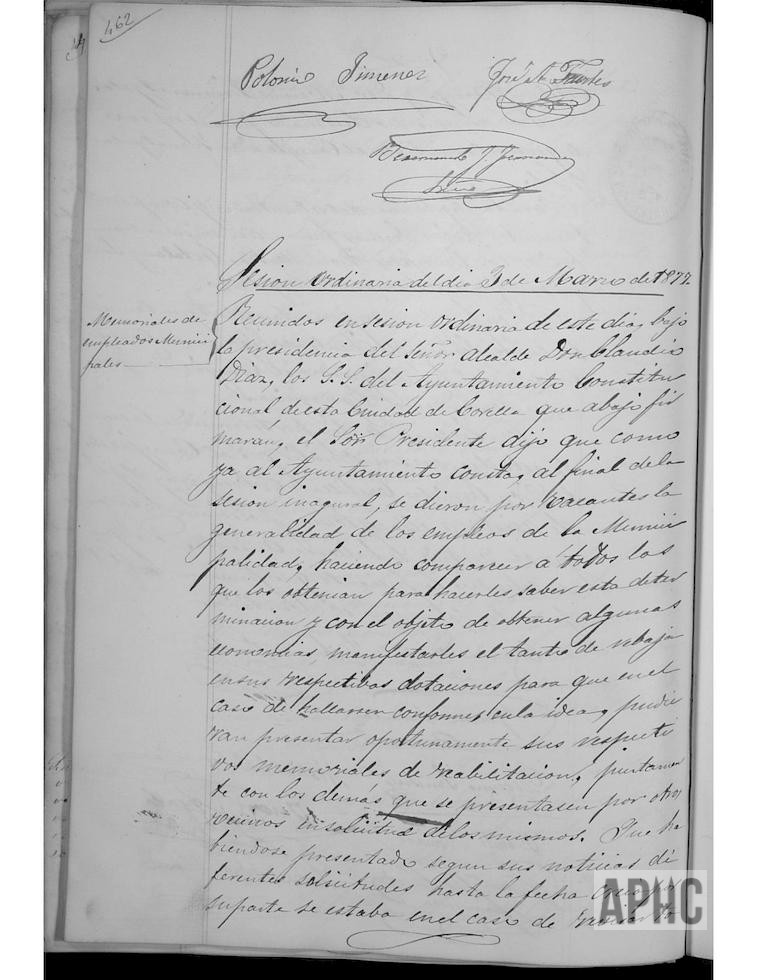 462
Polonio Jimenez
José A.
Sesion ordinaria del dia 3 de Marzo de 1877.
Memoriales de
empleados Munici
pales
Reunidos en sesion ordinaria de este dia, bajo
la presidencia del Señor alcalde Don Claudio
Diaz, los S.S. del Ayuntamiento Constitu
cional de esta Ciudad de Corella que abajo fir
marán, el Sor. Presidente dijo que como
ya al Ayuntamiento consta, al final de la
sesion inagural, se dieron por vacantes la
generalidad de los empleos de la Munici
palidad, haciendo comparecer á todos los
que los obtenian para hacerles saber esta deter
minacion y con el objeto de obtener algunas
economias, manifestarles el tanto de rebaja
en sus respectivas dotaciones para que en el
caso de hallarsen conformes en la idea, pudie
ran presentar oportunamente sus respecti
vos memoriales de reabilitacion, juntamen
te con los demás que se presentasen por otros
vecinos en solicitud de los mismos. Que ha
biendose presentado segun sus noticias di
ferentes solicitudes hasta la fecha
su parte se estaba en el caso de
APHC